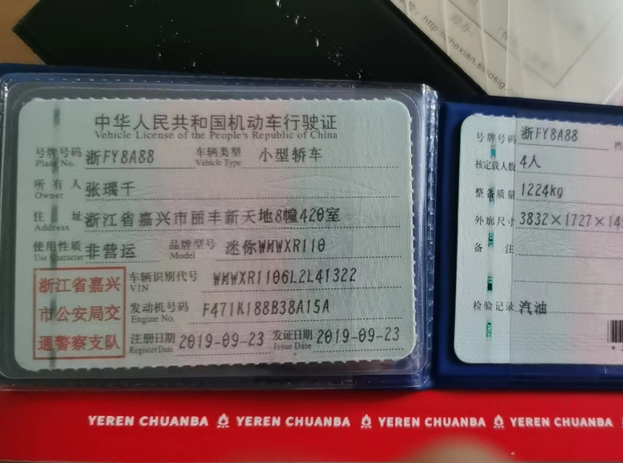 号: http://chexian.sinosig
中华人民共和国机动车行驶证
Vehicle License of the People's Republic of China
号牌号码 浙FY8A88 车辆类型 小型轿车
Plate No. Vehicle Type
所有人 张瑞千
Owner
住址 浙江省嘉兴市丽丰新天地8幢420室
Address
使用性质 非营运 品牌型号 迷你WMWXR110
Use Character Model
浙江省嘉兴
市公安局交
通警察支队
车辆识别代号 WMWXR1106L2L41322
VIN
发动机号码 F471K188B38A15A
Engine No.
注册日期 2019-09-23 发证日期 2019-09-23
Register Date Issue Date
号牌号码 浙FY8A88
核定载人数 4人
整备质量 1224kg
外廓尺寸 3832×1727×14
备注
检验记录 汽油
YEREN CHUANBA YEREN CHUANBA YEREN CHUANBA YEREN CHUANBA